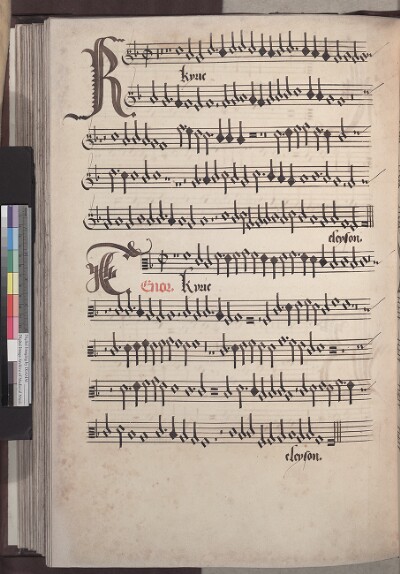 Kyrie
eleyson.
Tenor. Kyrie
eleyson.